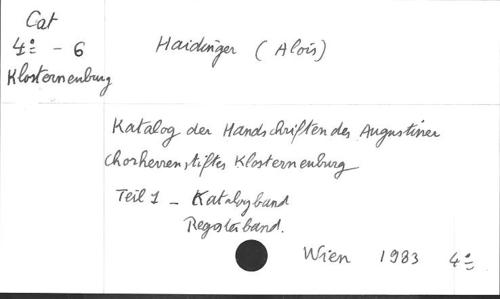 Cat
4º - 6
Klosterneuburg
Haidinger (Alois)
Katalog der Handschriften des Augustiner
Chorherrenstiftes Klosterneuburg
Teil 1 - Katalogband
Registerband.
Wien 1983 4º